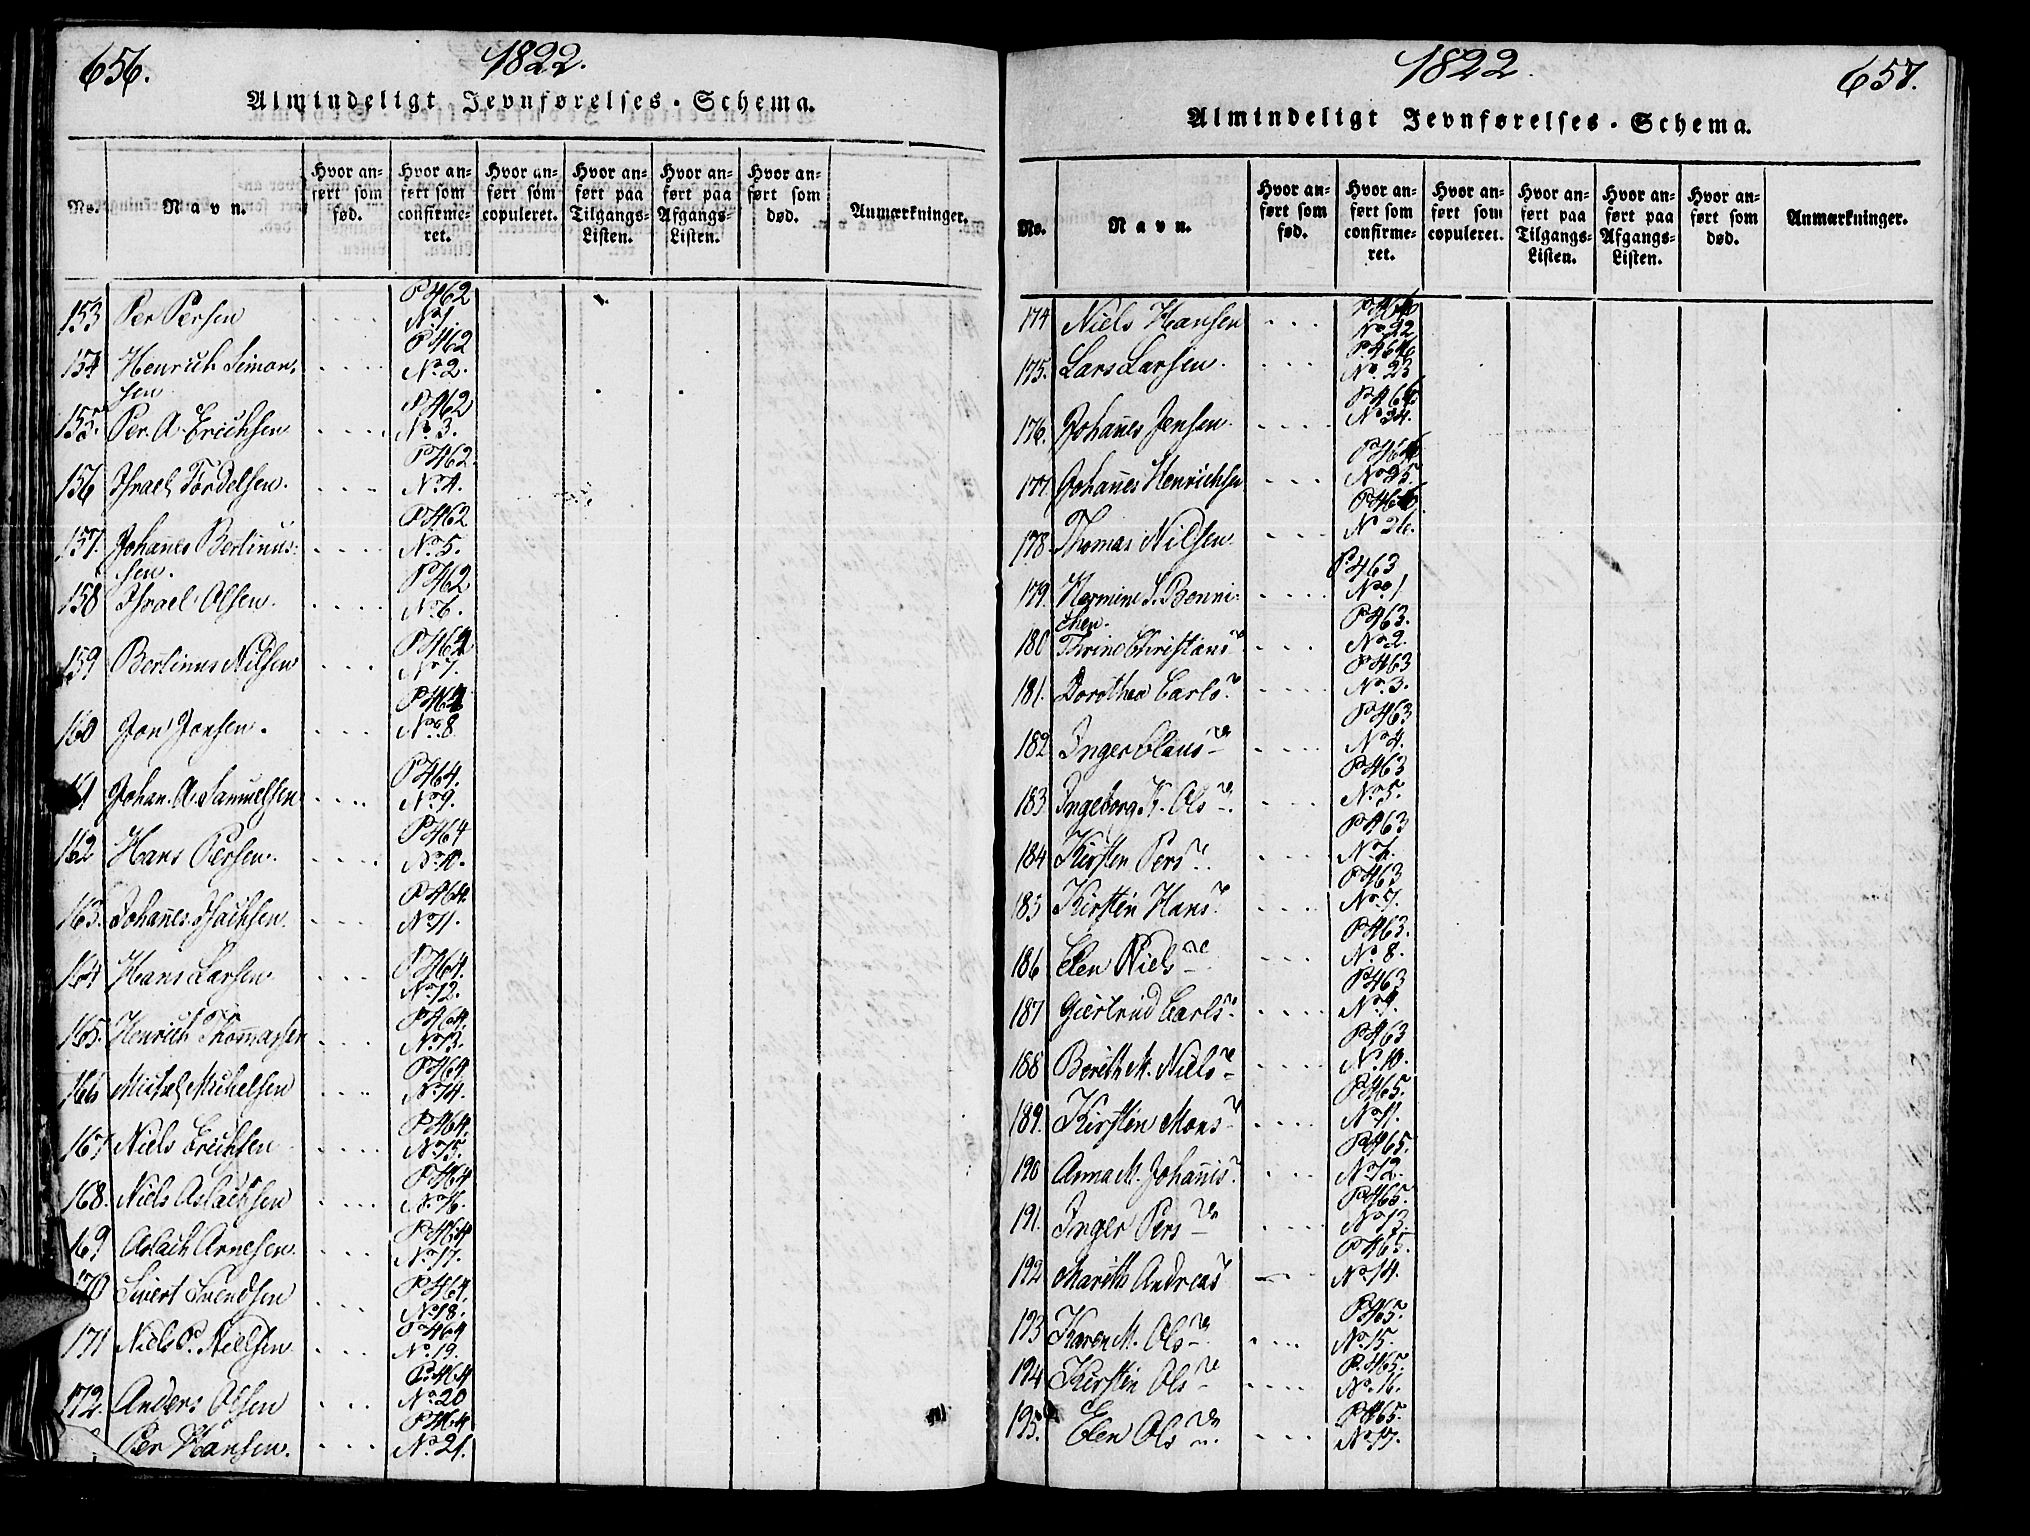 656.
1822.
Almindeligt Jevnførelses-Schema.
No.
Navn.
Hvor anført som fød.
Hvor anført som confirmeret.
Hvor anført som copuleret.
Hvor anført paa Tilgangs-Listen.
Hvor anført paa Afgangs-Listen.
Hvor anført som død.
Anmærkninger.
153 Per Persen . . . . P 462 No 1.
154 Henrich Simon, . . . . P 462 No 2.
sen
155. Per A. Erichsen . . . . P 462 No 3.
156 Israel Tordelsen. . . . P 462. No 4.
157. Johañes Berlinus: . . . . P 462 No 5.
sen.
158 Israel Olsen. . . . . P 462 No 6.
159 Berlinus Nilsen . . . P 462 No 7.
160 Jon Jonsen. . . . P 464 No 8.
161 Johan. A. Samuelsen . . . . P 464. No 9.
162 Hans Persen. . . . . P 464 No 10.
163. Johañes Isachsen. . . . P 464. No 11.
164 Hans Larsen . . . P 464. No 12.
165. Henrich Thomassen . . . P 464. No 13.
166 Michel Michelsen . . . . P 464 No 14.
167 Niels Erichsen . . . . P 464. No 15.
168. Niels Aslachsen . . . . P 464 No 16.
169 Aslach Arnesen . . . P 464 No 17.
170 Sivert Svendsen . . . P 464. No 18.
171 Niels P. Nielsen . . . P 464 No 19.
172. Anders Olsen . . . P 464 No 20
Per Hansen. . . . . P 464 No 21.
657.
1822.
Almindeligt Jevnførelses-Schema.
No.
Navn.
Hvor anført som fød.
Hvor anført som confirmeret.
Hvor anført som copuleret.
Hvor anført paa Tilgangs-Listen.
Hvor anført paa Afgangs-Listen.
Hvor anført som død.
Anmærkninger.
174 Niels Hansen . . . No 22
175. Lars Larsen. . . . No 23
176. Johañes Jensen. . . . .
177. Johañes Henrichsen . . .
178. Thomas Nilsen. . . . No 26.
179. Hermine S. Benni: . . . . P 463 No 1
chen.
180 Thrine Christians . . . P 463. No 2
181. Dorothea Carls . . . . P 463 No 3.
182 Inger Claus . . . . P 463 No 4.
183 Ingeborg K. Ols . . . P 463 No 5.
184 Kirsten Pers . . . P 463 No 6.
185 Kirsten Hans . . . . P 463 No 7.
186 Elen Niels . . . P 463. No 8.
187 Giertrud Carls . . . . P 463 No 9.
188 Berith M. Niels . . . . P 463 No 10.
189. Kirsten Mons . . . . P 465. No 11.
190 Anna M. Johañis . . . P 465. No 12.
191. Inger Pers . . . . P 465. No 13.
192 Marith Andreas . . P 465. No 14.
193 Karen M. Ols . . . . P 465. No 15.
194 Kirsten Ols . . . . P. 465. No 16.
195. Elen Ols . . . . P 465. No 17.